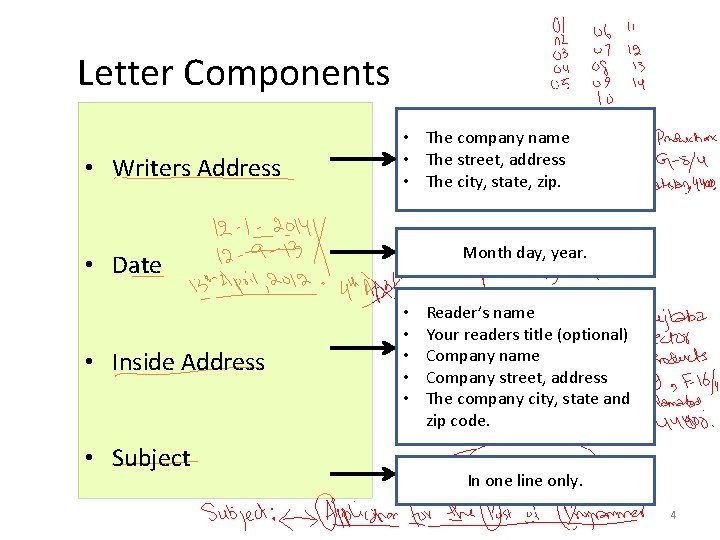 01 06 11
02 07 12
03 08 13
04 09 14
05 10
Letter Components
• Writers Address
• The company name
• The street, address
• The city, state, zip.
Production
G-8/4
12-1-2014
12-9-13
• Date
Month day, year.
13th April, 2012.
4th
• Inside Address
• Reader’s name
• Your readers title (optional)
• Company name
• Company street, address
• The company city, state and
zip code.
ejtaba
ector
roducts
, F-16/4
• Subject
In one line only.
Subject: Application for the Post of Programmer
4